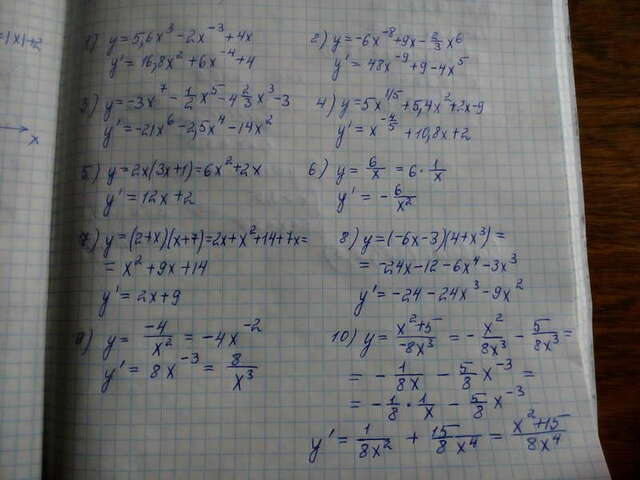 =|x|+2
x
1) y=5,6x³-2x⁻³+4x
y'=16,8x²+6x⁻⁴+4
2) y=-6x⁻⁸+9x-2/3x⁶
y'=48x⁻⁹+9-4x⁵
3) y=-3x⁷-1/2x⁵-4 2/3x³-3
y'=-21x⁶-2,5x⁴-14x²
4) y=5x^(1/5)+5,4x²+2x-9
y'=x^(-4/5)+10,8x+2
5) y=2x(3x+1)=6x²+2x
y'=12x+2
6) y=6/x=6·1/x
y'=-6/x²
7) y=(2+x)(x+7)=2x+x²+14+7x=
=x²+9x+14
y'=2x+9
8) y=(-6x-3)(4+x³)=
=-24x-12-6x⁴-3x³
y'=-24-24x³-9x²
9) y=-4/x²=-4x⁻²
y'=8x⁻³=8/x³
10) y=(x²+5)/(-8x³)=-x²/(8x³)-5/(8x³)=
=-1/(8x)-5/8x⁻³=
=-1/8·1/x-5/8x⁻³
y'=1/(8x²)+15/(8x⁴)=(x²+15)/(8x⁴)